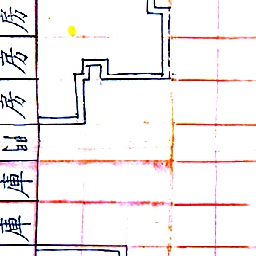 房
房
房
門
庫
庫